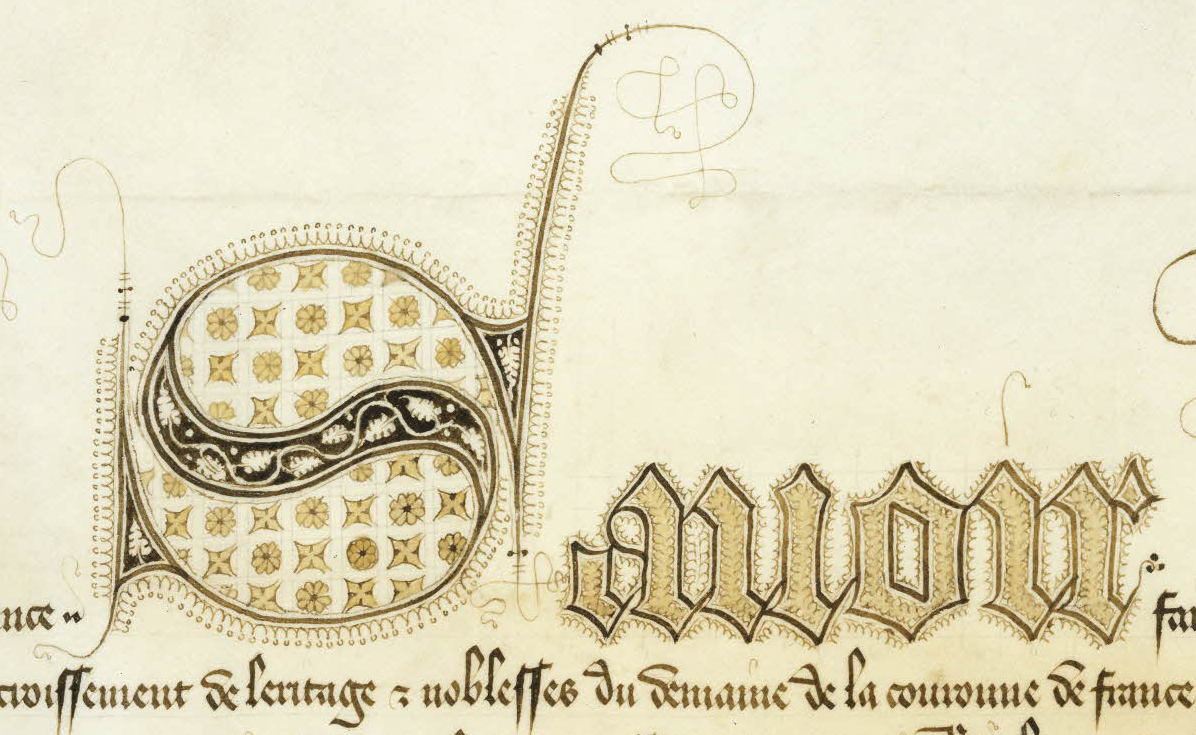 nce Sauoir fai
croissement de leritage ⁊ noblesses du demaine de la couronne de france